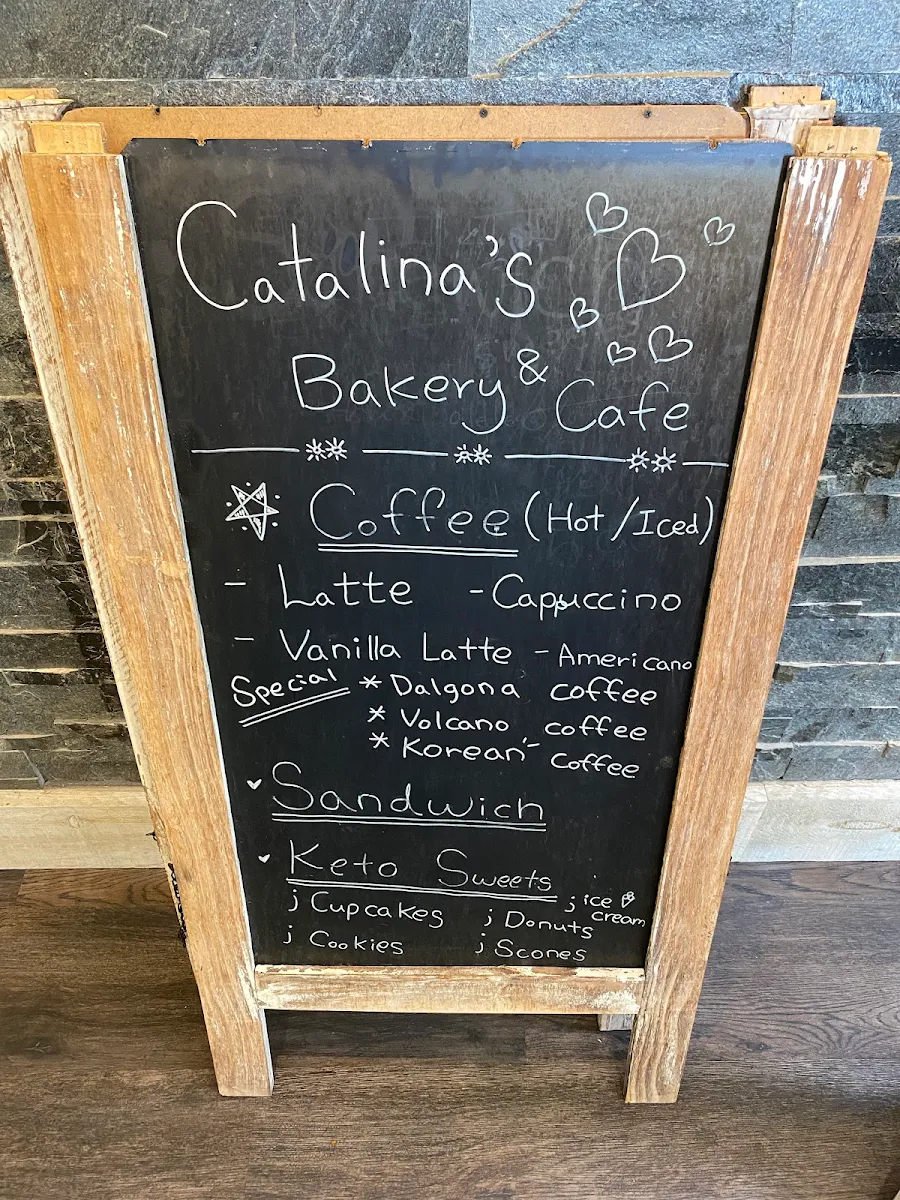 Catalina's
Bakery & Cafe
Coffee (Hot / Iced)
- Latte - Cappuccino
- Vanilla Latte - Americano
Special * Dalgona coffee
* Volcano coffee
* Korean - coffee
Sandwich
Keto Sweets
; Cupcakes ; Donuts ; ice cream
; Cookies ; Scones